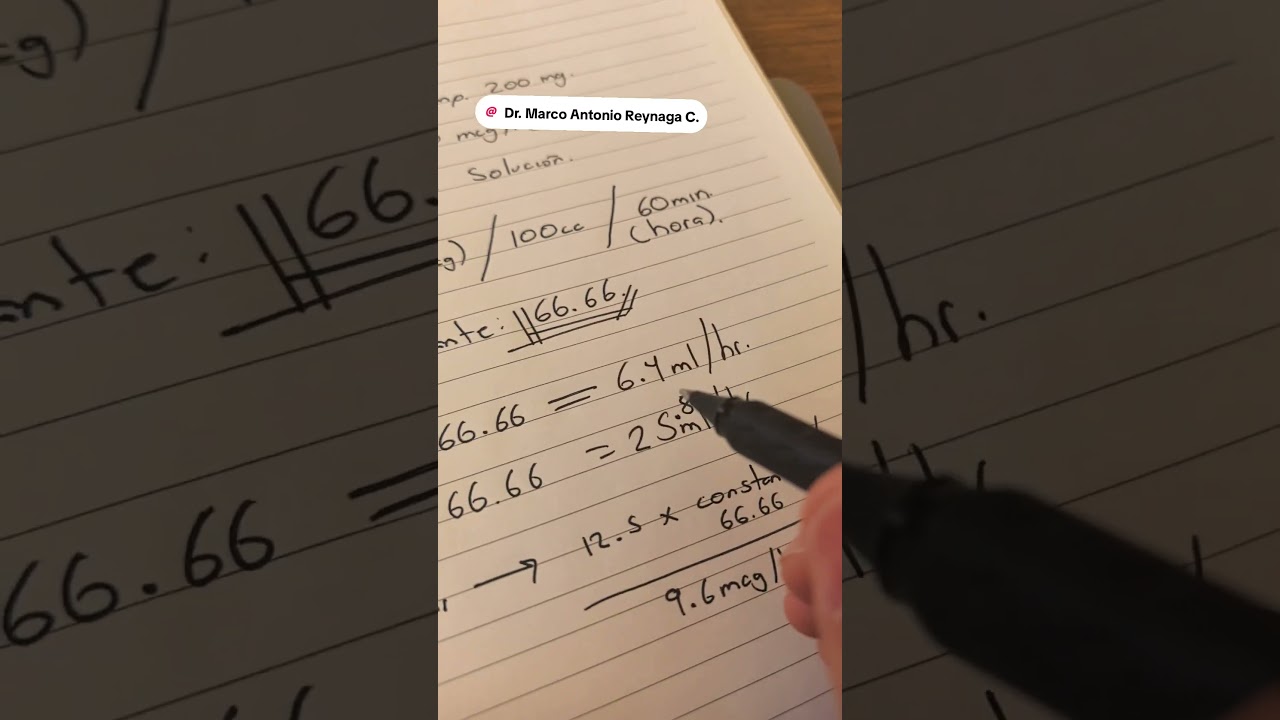 200 mg.
@ Dr. Marco Antonio Reynaga C.
Solución.
g) / 100cc / 60 min.
(hora).
nte: 66.66
66.66 = 6.4 ml/hr.
66.66 = 25.8 ml
12.5 x constan
66.66
9.6 mcg/